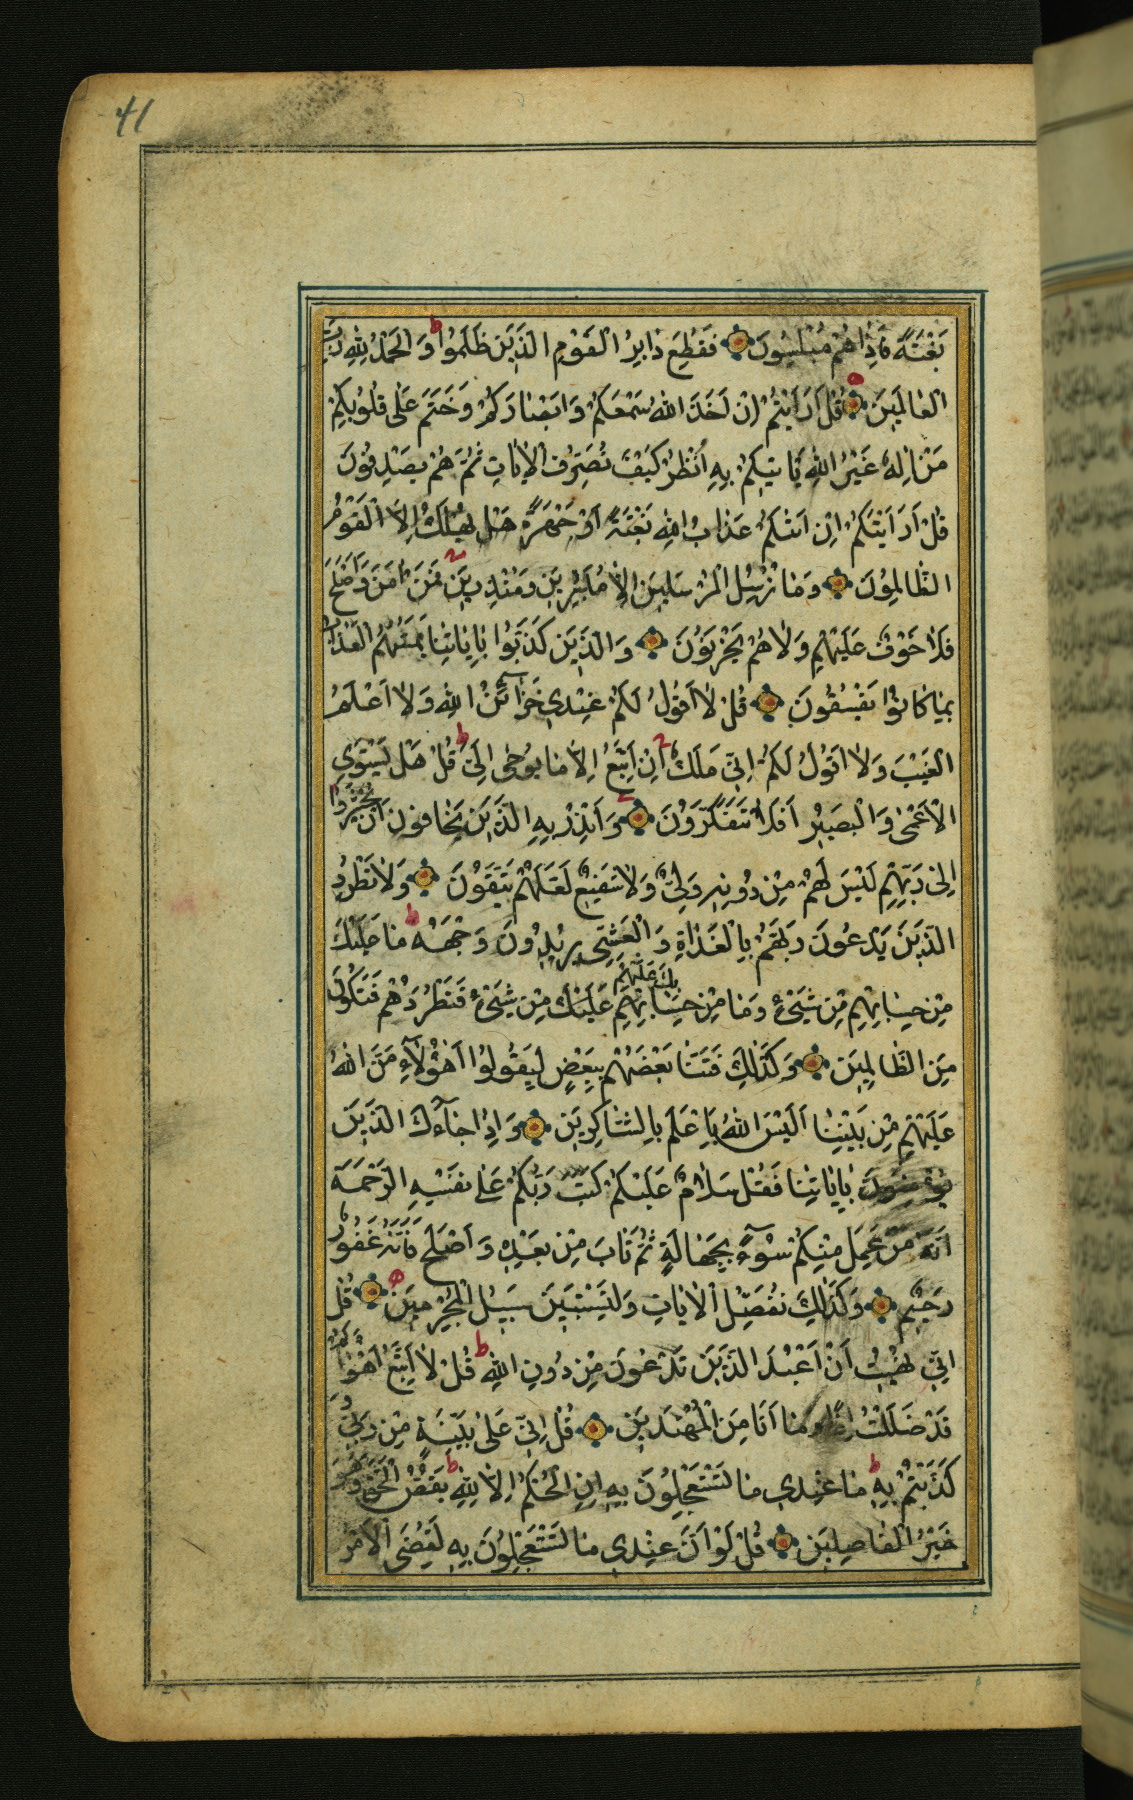 41
بَغْتَةً فَإِذَا هُمْ مُبْلِسُونَ فَقُطِعَ دَابِرُ الْقَوْمِ الَّذِينَ ظَلَمُوا ط وَالْحَمْدُ لِلّٰهِ رَبِّ
الْعَالَمِينَ قُلْ أَرَأَيْتُمْ إِنْ أَخَذَ اللّٰهُ سَمْعَكُمْ وَأَبْصَارَكُمْ وَخَتَمَ عَلَى قُلُوبِكُمْ
مَنْ إِلٰهٌ غَيْرُ اللّٰهِ يَأْتِيكُمْ بِهِ اُنْظُرْ كَيْفَ نُصَرِّفُ الْآيَاتِ ثُمَّ هُمْ يَصْدِفُونَ
قُلْ أَرَأَيْتَكُمْ إِنْ أَتٰكُمْ عَذَابُ اللّٰهِ بَغْتَةً أَوْ جَهْرَةً هَلْ يُهْلَكُ إِلَّا الْقَوْمُ
الظَّالِمُونَ وَمَا نُرْسِلُ الْمُرْسَلِينَ إِلَّا مُبَشِّرِينَ وَمُنْذِرِينَ فَمَنْ آمَنَ وَأَصْلَحَ
فَلَا خَوْفٌ عَلَيْهِمْ وَلَا هُمْ يَحْزَنُونَ وَالَّذِينَ كَذَّبُوا بِآيَاتِنَا يَمَسُّهُمُ الْعَذَابُ
بِمَا كَانُوا يَفْسُقُونَ قُلْ لَا أَقُولُ لَكُمْ عِنْدِي خَزَائِنُ اللّٰهِ وَلَا أَعْلَمُ
الْغَيْبَ وَلَا أَقُولُ لَكُمْ إِنِّي مَلَكٌ إِنْ أَتَّبِعُ إِلَّا مَا يُوحَى إِلَيَّ ط قُلْ هَلْ يَسْتَوِي
الْأَعْمَى وَالْبَصِيرُ أَفَلَا تَتَفَكَّرُونَ وَأَنْذِرْ بِهِ الَّذِينَ يَخَافُونَ أَنْ يُحْشَرُوا
إِلَى رَبِّهِمْ لَيْسَ لَهُمْ مِنْ دُونِهِ وَلِيٌّ وَلَا شَفِيعٌ لَعَلَّهُمْ يَتَّقُونَ وَلَا تَطْرُدِ
الَّذِينَ يَدْعُونَ رَبَّهُمْ بِالْغَدَاةِ وَالْعَشِيِّ يُرِيدُونَ وَجْهَهُ ط مَا عَلَيْكَ
مِنْ حِسَابِهِمْ مِنْ شَيْءٍ وَمَا مِنْ حِسَابِكَ عَلَيْهِمْ مِنْ شَيْءٍ فَتَطْرُدَهُمْ فَتَكُونَ
مِنَ الظَّالِمِينَ وَكَذٰلِكَ فَتَنَّا بَعْضَهُمْ بِبَعْضٍ لِيَقُولُوا أَهٰؤُلَاءِ مَنَّ اللّٰهُ
عَلَيْهِمْ مِنْ بَيْنِنَا أَلَيْسَ اللّٰهُ بِأَعْلَمَ بِالشَّاكِرِينَ وَإِذَا جَاءَكَ الَّذِينَ
يُؤْمِنُونَ بِآيَاتِنَا فَقُلْ سَلَامٌ عَلَيْكُمْ كَتَبَ رَبُّكُمْ عَلَى نَفْسِهِ الرَّحْمَةَ
أَنَّهُ مَنْ عَمِلَ مِنْكُمْ سُوءً بِجَهَالَةٍ ثُمَّ تَابَ مِنْ بَعْدِهِ وَأَصْلَحَ فَأَنَّهُ غَفُورٌ
رَحِيمٌ وَكَذٰلِكَ نُفَصِّلُ الْآيَاتِ وَلِتَسْتَبِينَ سَبِيلُ الْمُجْرِمِينَ قُلْ
إِنِّي نُهِيتُ أَنْ أَعْبُدَ الَّذِينَ تَدْعُونَ مِنْ دُونِ اللّٰهِ ط قُلْ لَا أَتَّبِعُ أَهْوَاءَكُمْ
قَدْ ضَلَلْتُ إِذًا وَمَا أَنَا مِنَ الْمُهْتَدِينَ قُلْ إِنِّي عَلَى بَيِّنَةٍ مِنْ رَبِّي وَ
كَذَّبْتُمْ بِهِ ط مَا عِنْدِي مَا تَسْتَعْجِلُونَ بِهِ إِنِ الْحُكْمُ إِلَّا لِلّٰهِ ط يَقُصُّ الْحَقَّ وَهُوَ
خَيْرُ الْفَاصِلِينَ قُلْ لَوْ أَنَّ عِنْدِي مَا تَسْتَعْجِلُونَ بِهِ لَقُضِيَ الْأَمْرُ